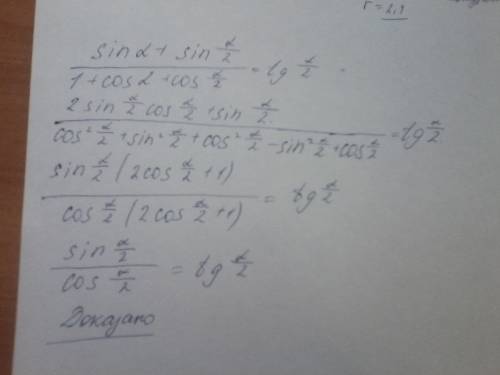 r = 2,1
(sin α + sin α/2) / (1 + cos α + cos α/2) = tg α/2 .
(2 sin α/2 cos α/2 + sin α/2) / (cos² α/2 + sin² α/2 + cos² α/2 - sin² α/2 + cos α/2) = tg α/2
(sin α/2 (2cos α/2 + 1)) / (cos α/2 (2cos α/2 + 1)) = tg α/2
(sin α/2) / (cos α/2) = tg α/2
Доказано